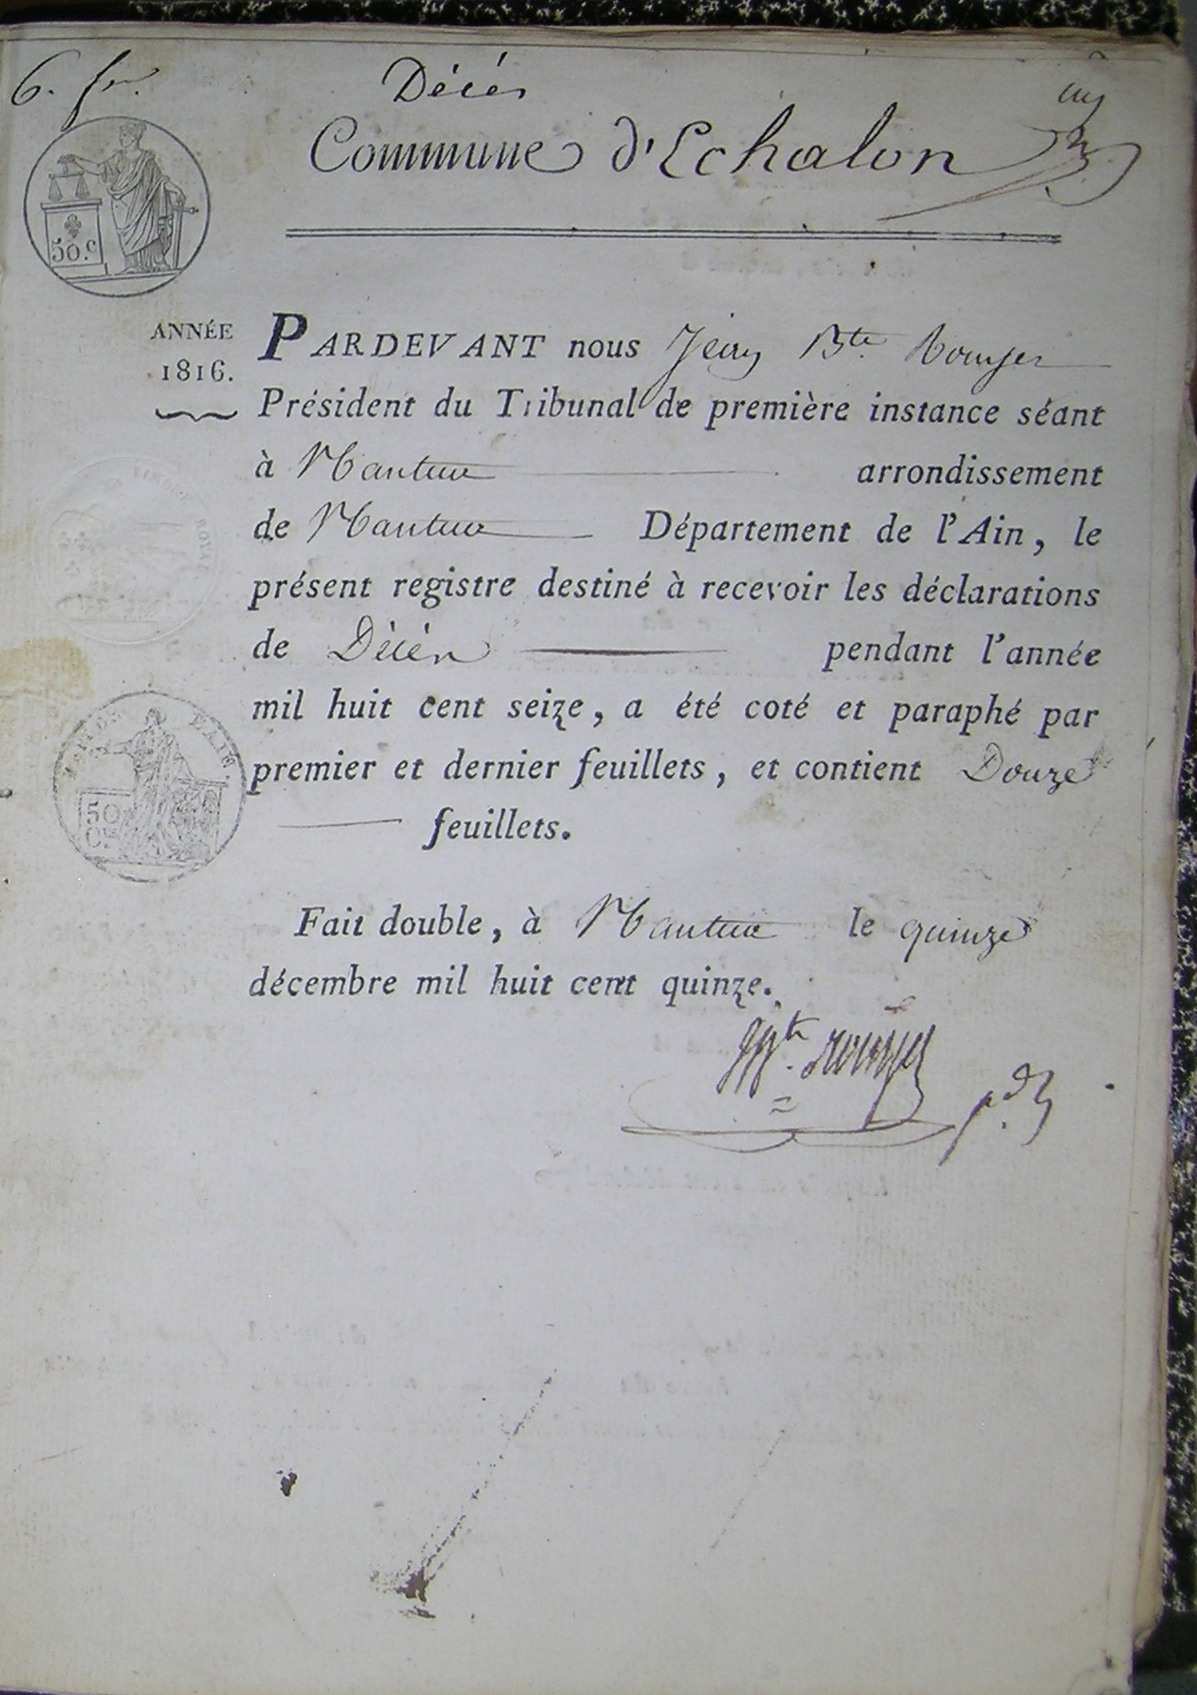 6. fr.
Décés
Commune d'Echalon
50.c
ANNÉE
1816.
PARDEVANT nous Jean Bte. Rouyer
Président du Tribunal de première instance séant
à Nantua arrondissement
de Nantua Département de l'Ain, le
présent registre destiné à recevoir les déclarations
de Décés pendant l'année
mil huit cent seize, a été coté et paraphé par
premier et dernier feuillets, et contient Douze
feuillets.
50
Cs
Fait double, à Nantua le quinze
décembre mil huit cent quinze.